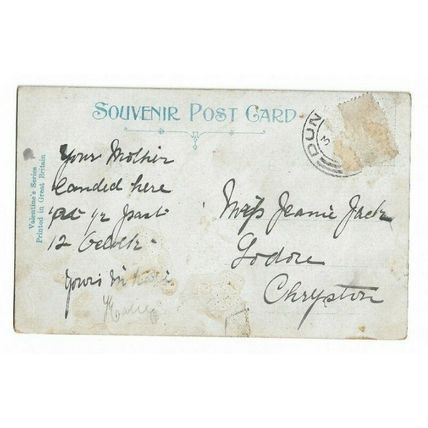 SOUVENIR POST CARD
Valentine's Series
Printed in Great Britain
DUN
Your Mother
landed here
past
12 o'clock.
Yours in haste
Miss Jeanie Jack
Lodore
Chryston